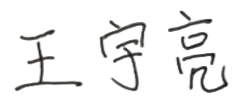 王宇亮